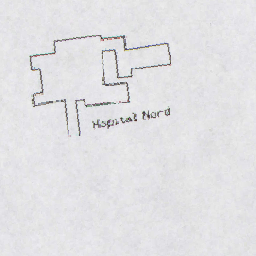 Hôpital Nord